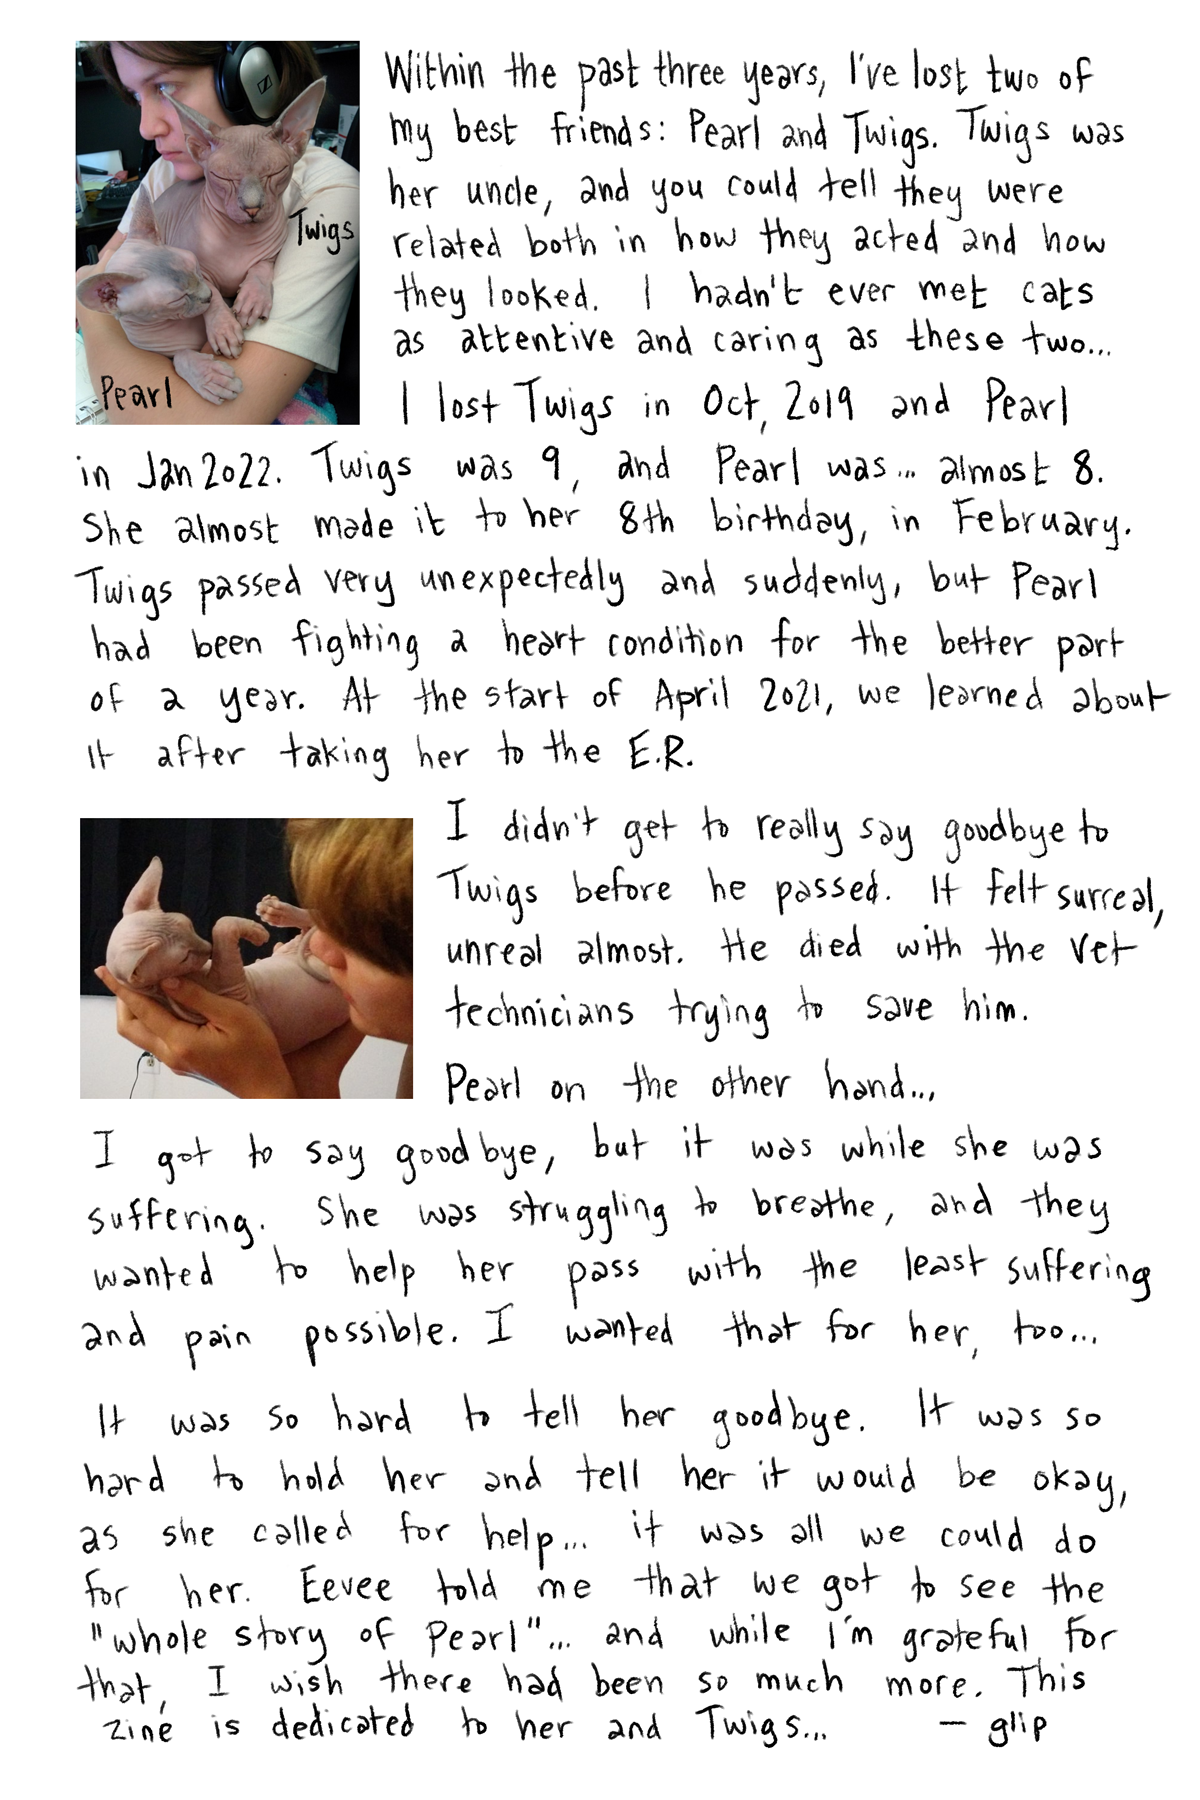 Within the past three years, I've lost two of
my best friends: Pearl and Twigs. Twigs was
her uncle, and you could tell they were
related both in how they acted and how
they looked. I hadn't ever met cats
as attentive and caring as these two...
I lost Twigs in Oct, 2019 and Pearl
in Jan 2022. Twigs was 9, and Pearl was... almost 8.
She almost made it to her 8th birthday, in February.
Twigs passed very unexpectedly and suddenly, but Pearl
had been fighting a heart condition for the better part
of a year. At the start of April 2021, we learned about
it after taking her to the E.R.
Twigs
Pearl
I didn't get to really say goodbye to
Twigs before he passed. It felt surreal,
unreal almost. He died with the vet
technicians trying to save him.
Pearl on the other hand...
I got to say goodbye, but it was while she was
suffering. She was struggling to breathe, and they
wanted to help her pass with the least suffering
and pain possible. I wanted that for her, too...
It was so hard to tell her goodbye. It was so
hard to hold her and tell her it would be okay,
as she called for help... it was all we could do
for her. Eevee told me that we got to see the
"whole story of Pearl"... and while I'm grateful for
that, I wish there had been so much more. This
zine is dedicated to her and Twigs... – glip